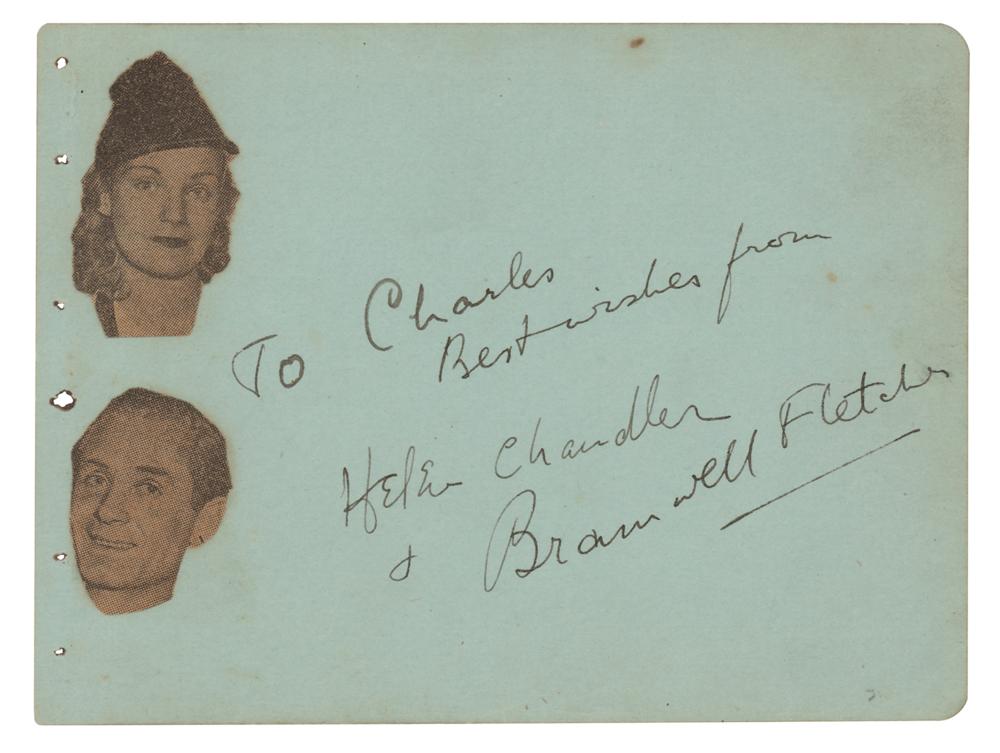 To Charles
Best wishes from
Helen Chandler
& Bramwell Fletcher